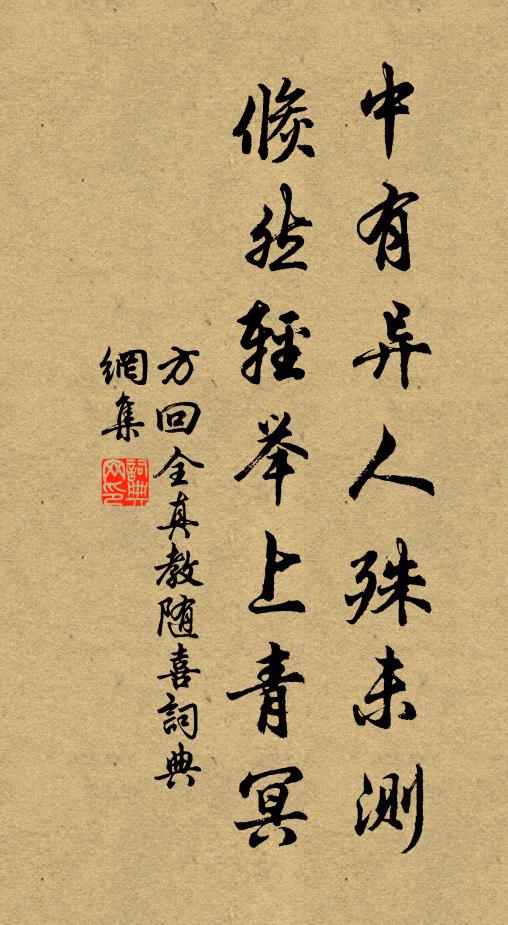 中有异人殊未测
倏然輕举上青冥
方回全真教随喜詞典
網集
詞典
网印